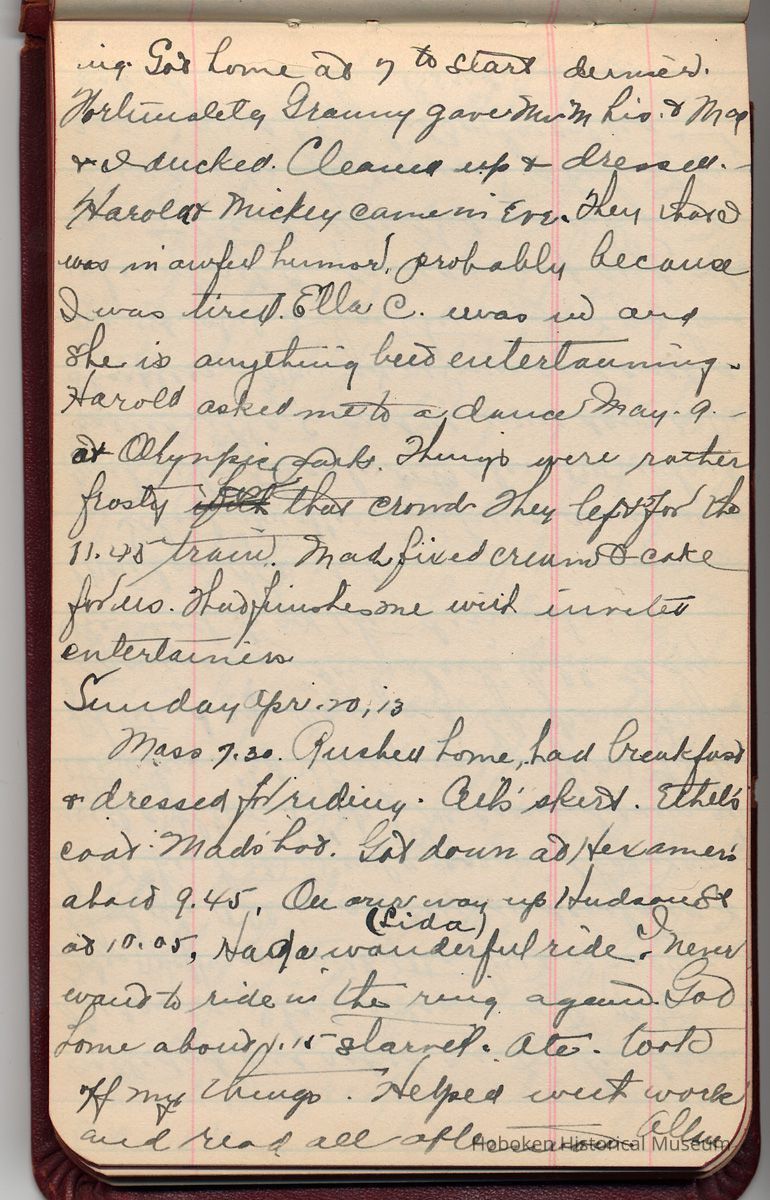 ing. Got home at 7 to start dinner.
Fortunately Granny gave Mr. M his. & Mag
& I ducked. Cleaned up & dressed. -
Harold & Mickey came in Eve. They
was in awful humor, probably because
I was tired. Ella C. was in and
she is anything but entertaining.
Harold asked me to a dance May. 9. -
at Olympic Park. Things were rather
frosty with that crowd. They left for the
11.45 train. Mad fixed cream & cake
for us. Had finishes me with invited
entertainers
Sunday Apr. 20, 13
Mass 7.30. Rushed home, had breakfast
& dressed for riding. Ceil's skirt. Ethel's
coat. Mad's hat. Got down at Hexamer's
about 9.45, On our way up Hudson St
(Lida)
at 10.05, Had a wonderful ride. I never
want to ride in the ring again. Got
home about 1.15 starved. Ate. took
off my things. Helped with work
and read all
Hoboken Historical Museum